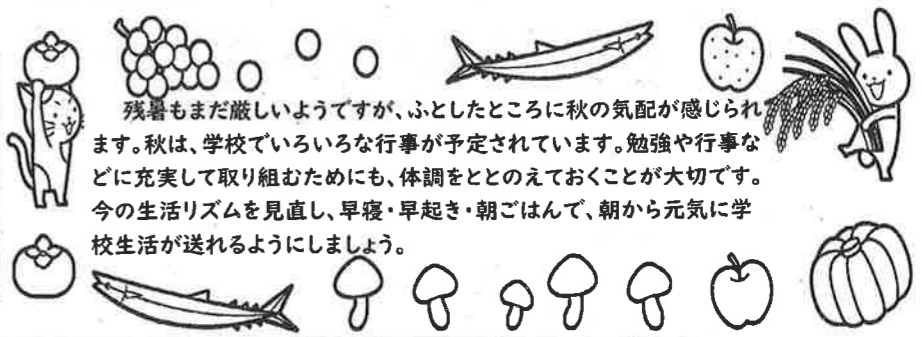 残暑もまだ厳しいようですが、ふとしたところに秋の気配が感じられ
ます。秋は、学校でいろいろな行事が予定されています。勉強や行事な
どに充実して取り組むためにも、体調をととのえておくことが大切です。
今の生活リズムを見直し、早寝・早起き・朝ごはんで、朝から元気に学
校生活が送れるようにしましょう。